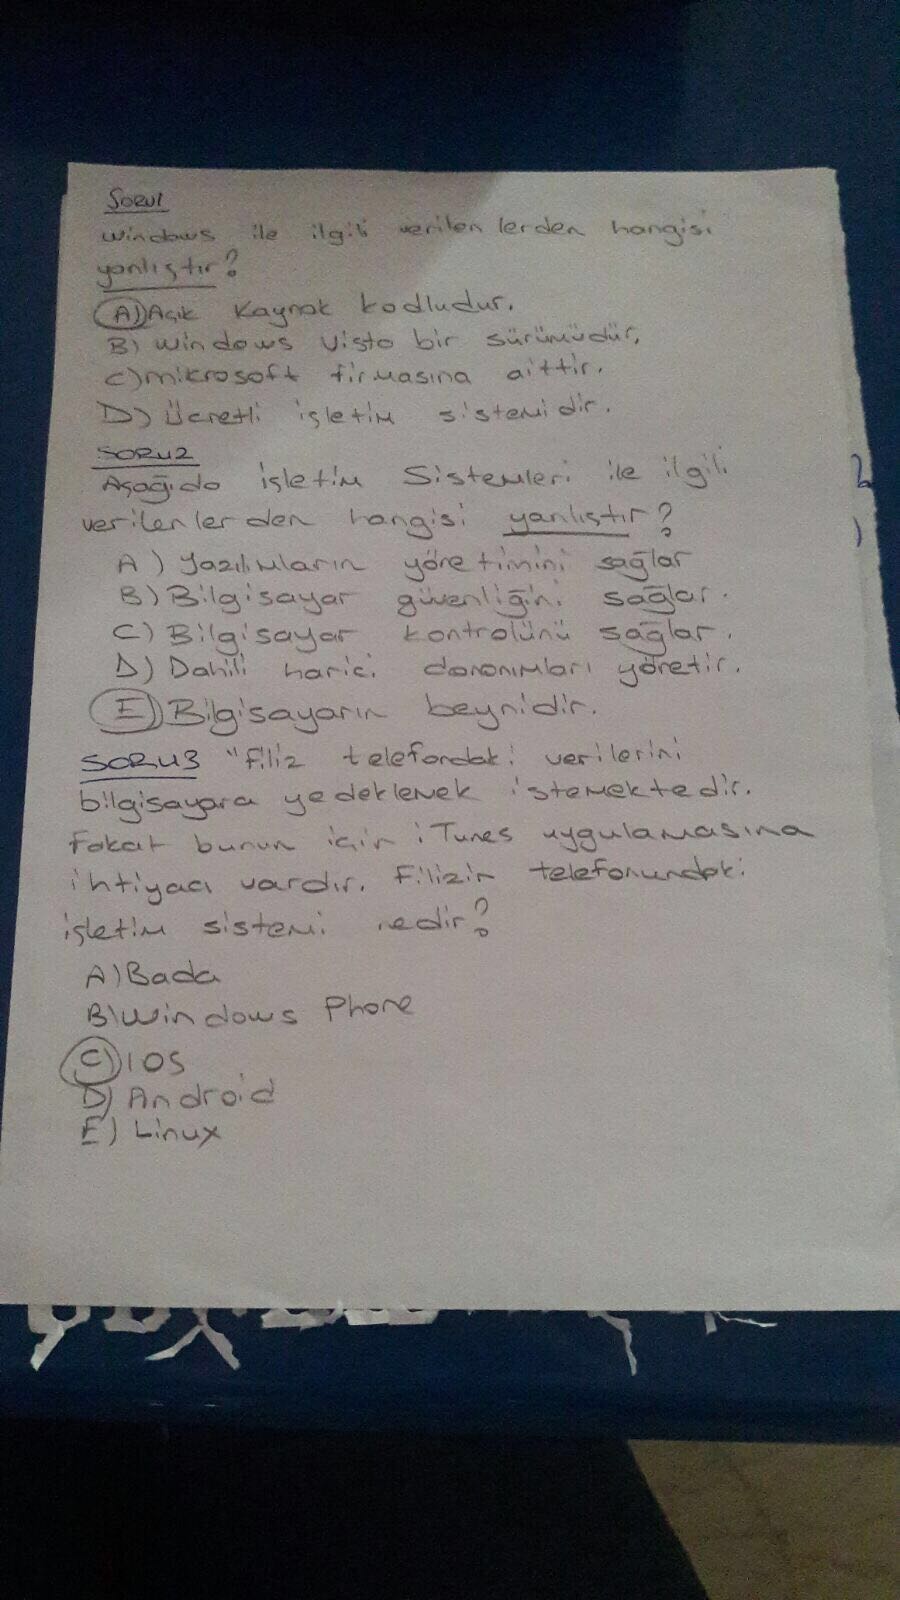 SORU1
windows ile ilgili verilenlerden hangisi
yanlıştır?
A) Açık Kaynak kodludur.
B) windows Vista bir sürümüdür.
C) mikrosoft firmasına aittir.
D) ücretli işletim sistemidir.
SORU2
Aşağıda işletim Sistemleri ile ilgili
verilenlerden hangisi yanlıştır?
A) Yazılımların yöretimini sağlar
B) Bilgisayar güvenliğini sağlar.
C) Bilgisayar kontrolünü sağlar.
D) Dahili harici donanımları yöretir.
E) Bilgisayarın beynidir.
SORU3 "Filiz telefondaki verilerini
bilgisayara yedeklemek istemektedir.
Fakat bunun için iTunes uygulamasına
ihtiyacı vardır. Filizin telefonundaki
işletim sistemi nedir?
A) Bada
B) Windows Phone
C) IOS
D) Android
E) Linux